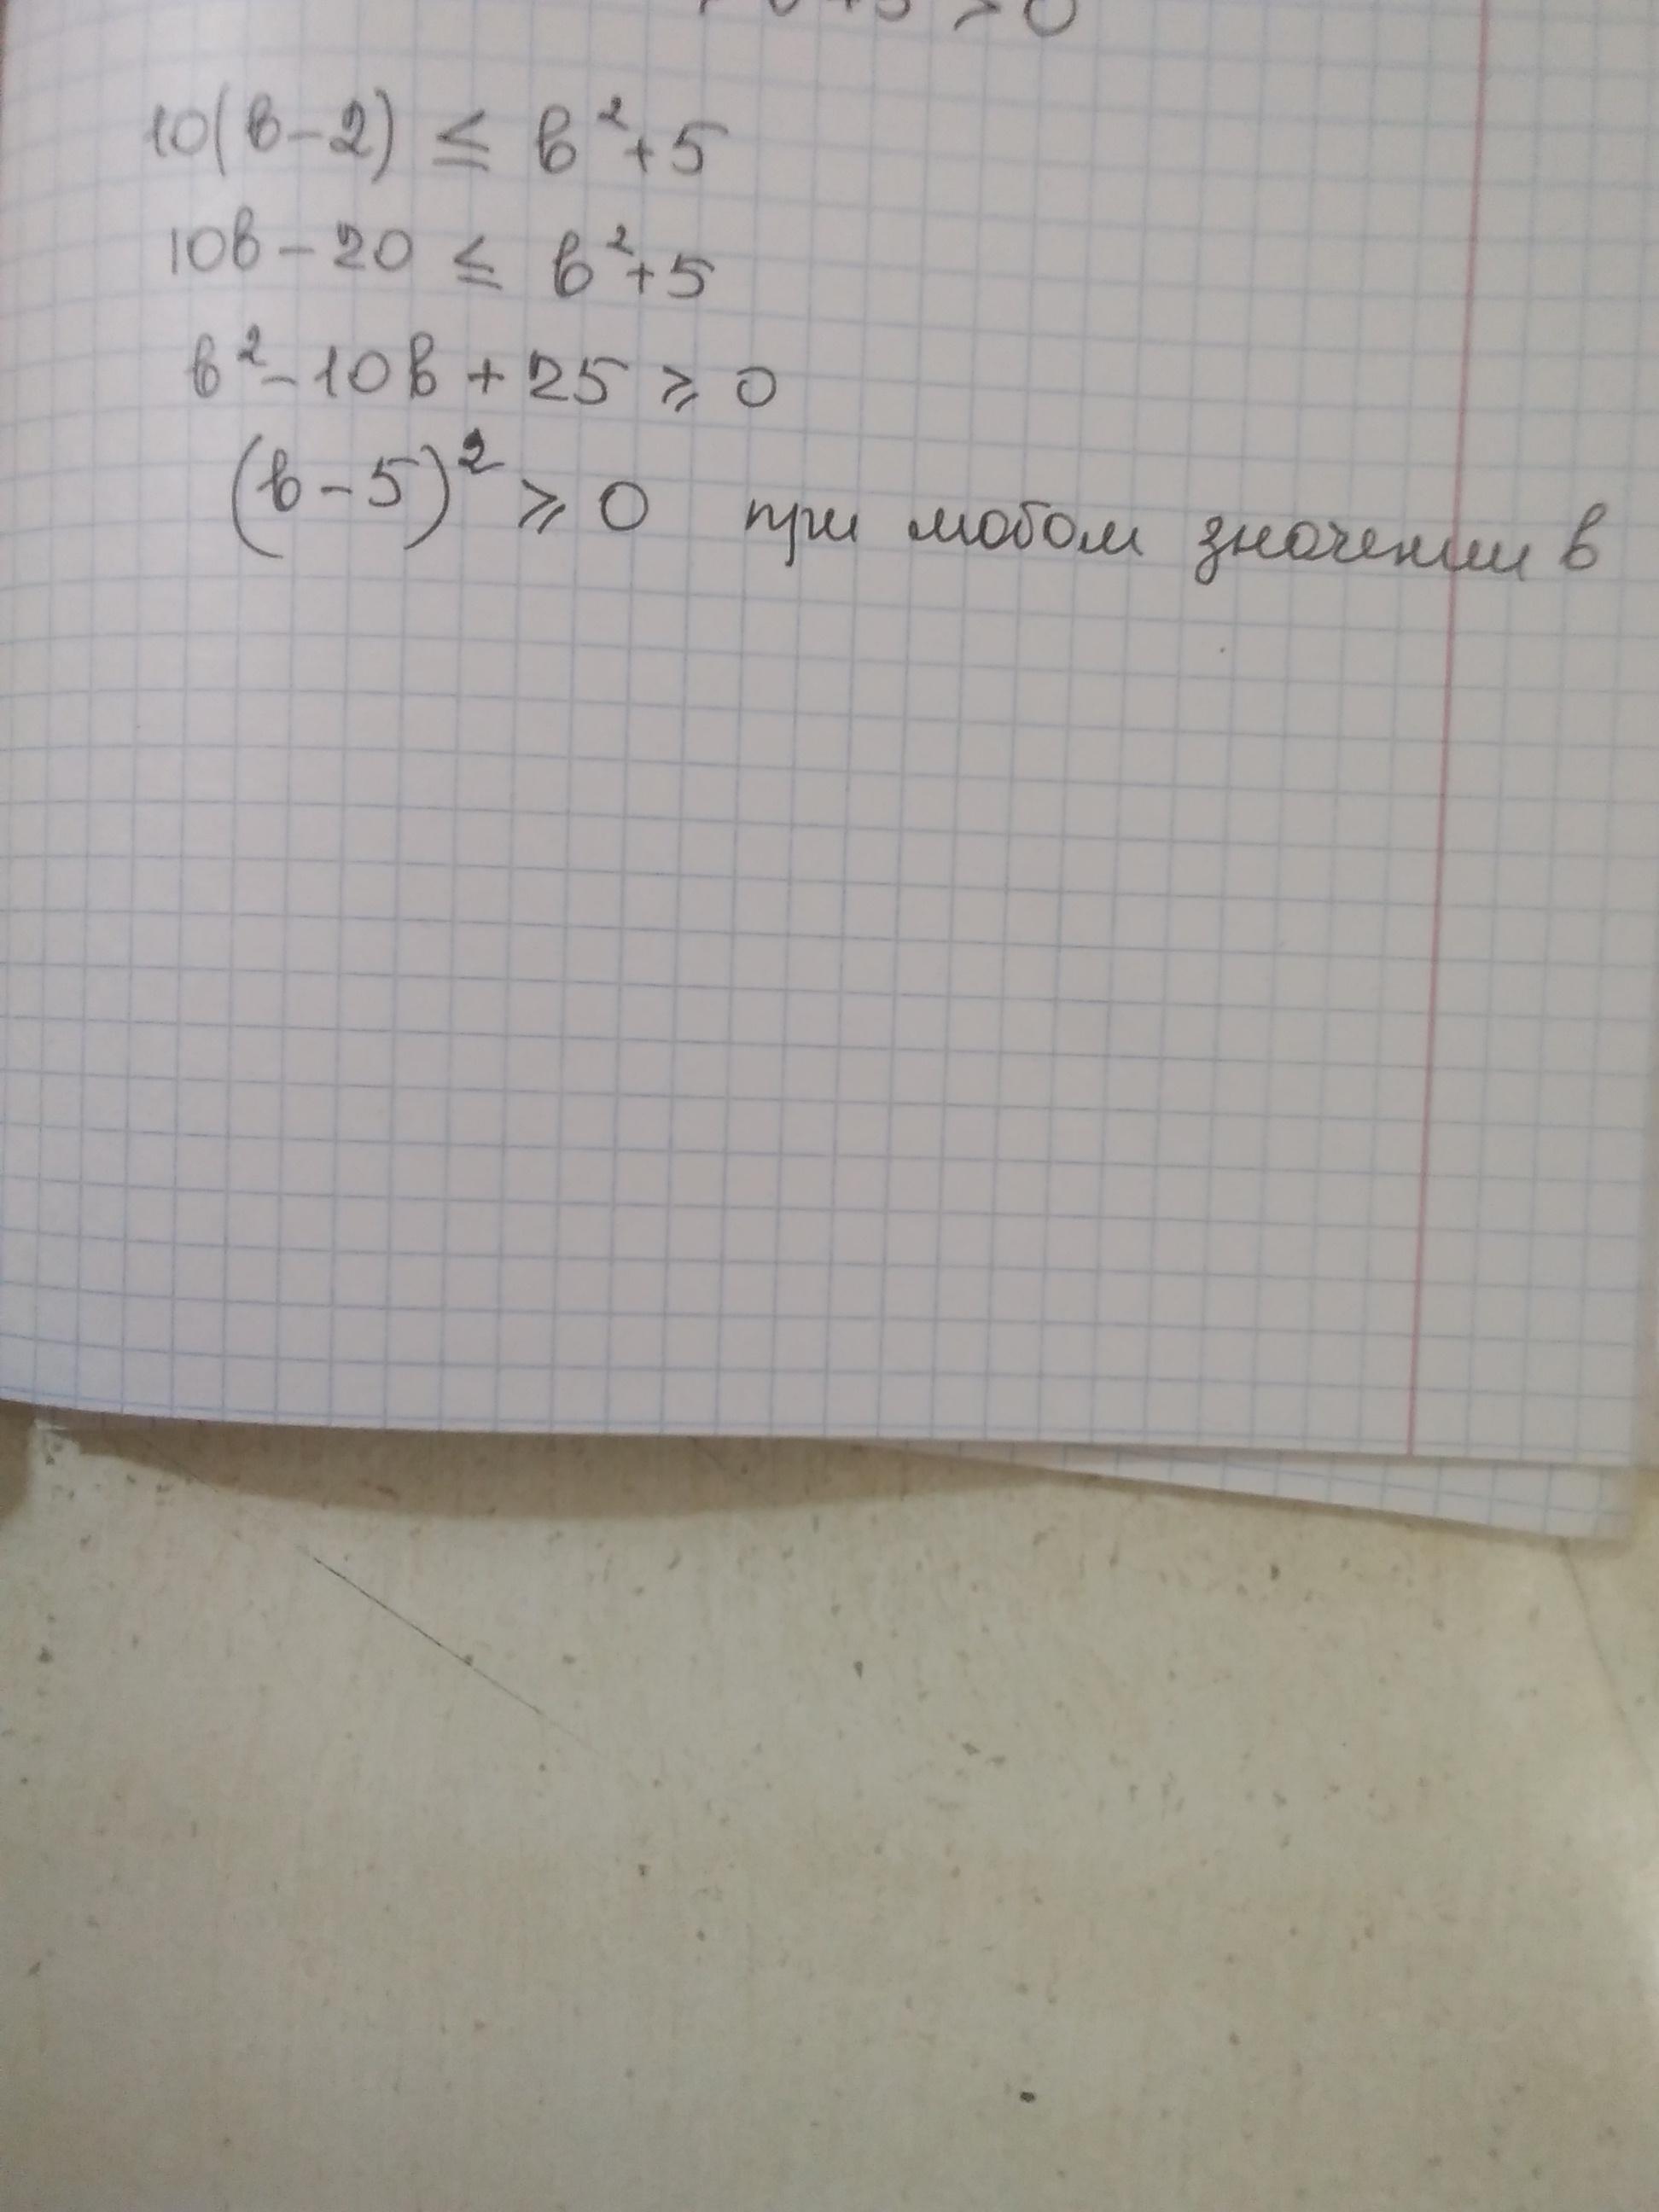 10(в-2) ≤ в²+5
10в-20 ≤ в²+5
в²-10в+25 ⩾ 0
(в-5)² ⩾ 0 при любом значении в